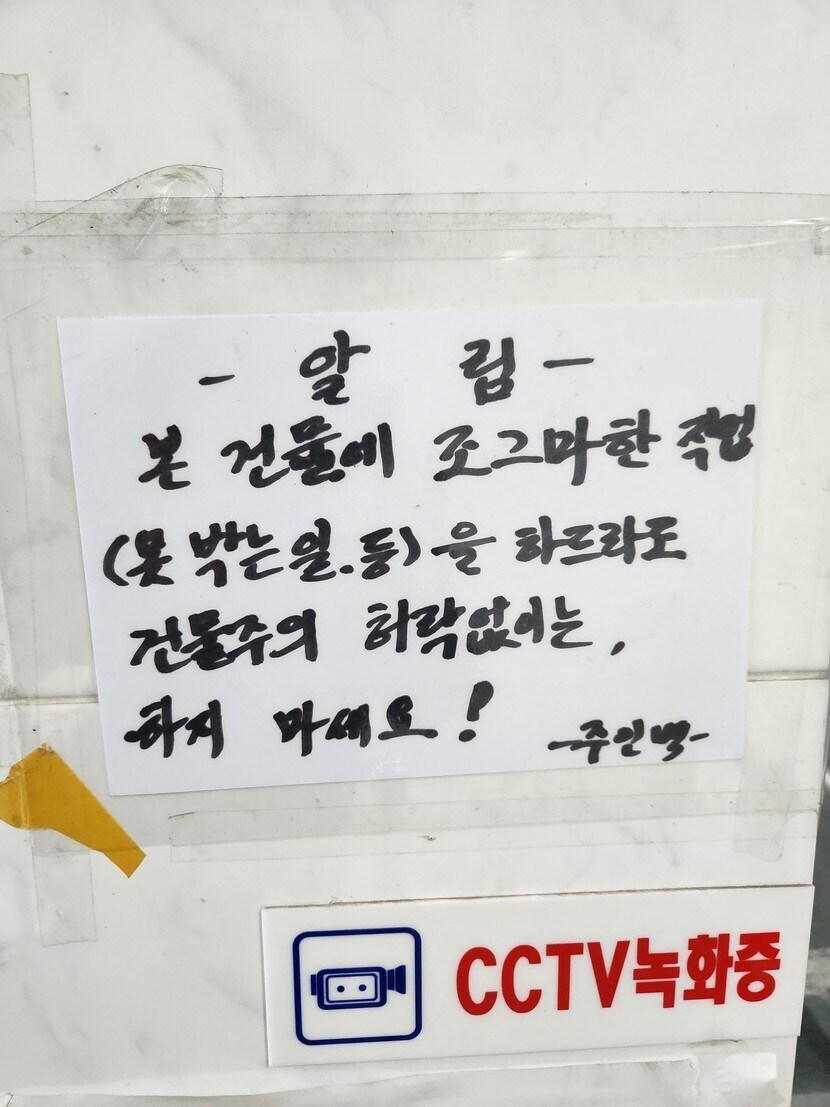 - 알 림 -
본 건물에 조그마한 작업
(못 박는일.등)을 하드라도
건물주의 허락없이는,
하지 마세요!
-주인백-
CCTV녹화중